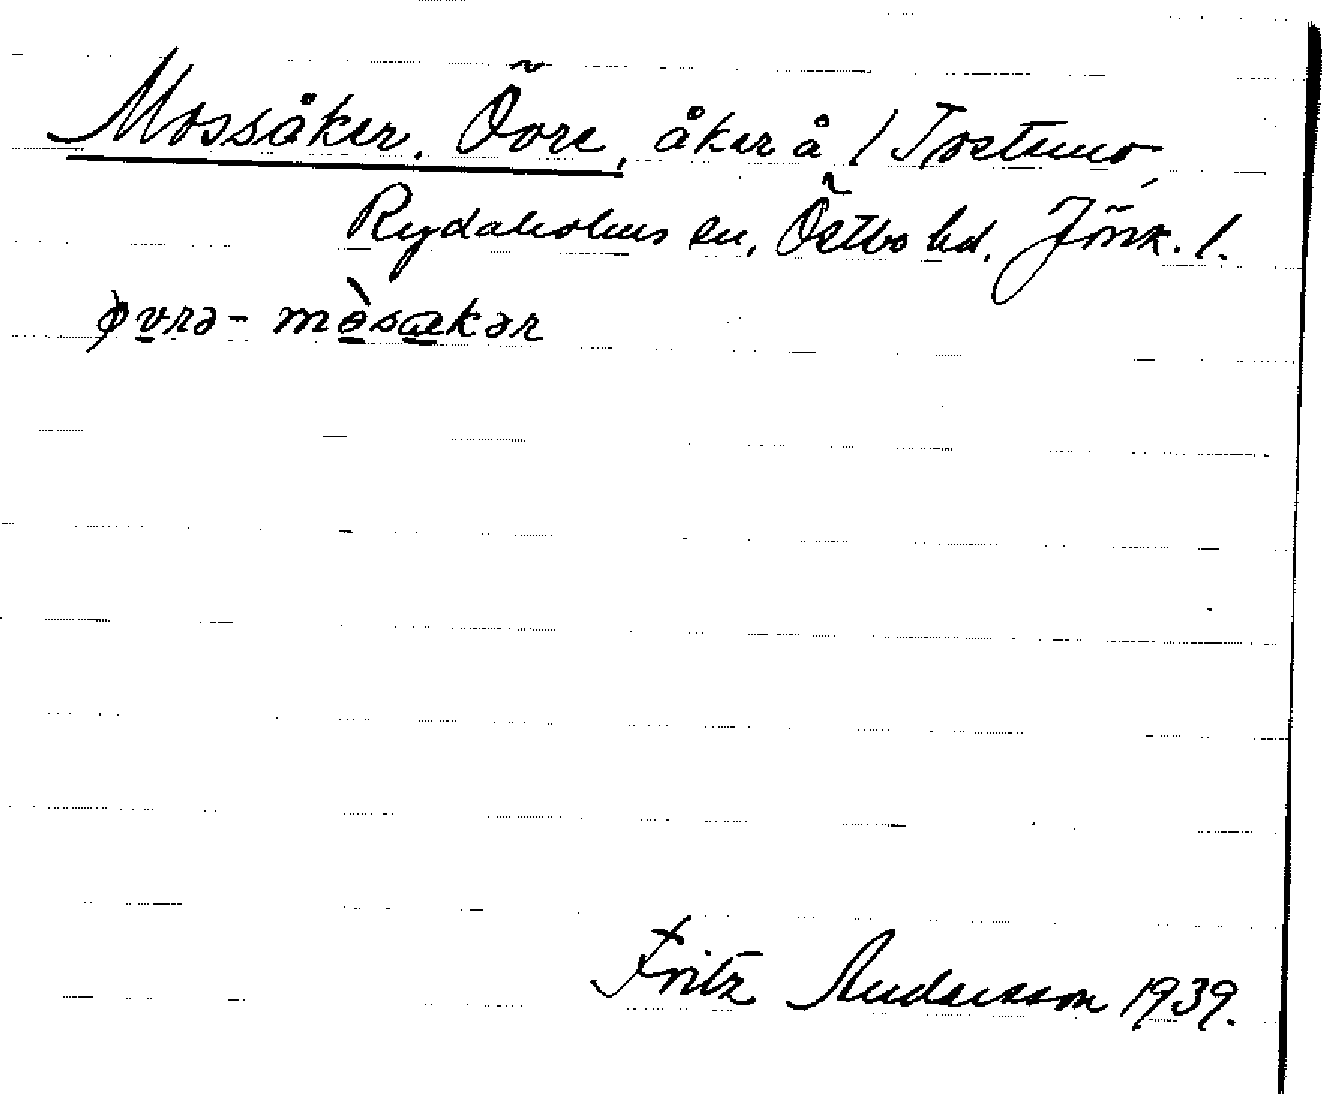 Mossåker, Övre, åker å 1 Tostemo,
Rydaholms sn, Östbo hd, Jönk. l.
øvrə- mòsakər
Fritz Andersson 1939.